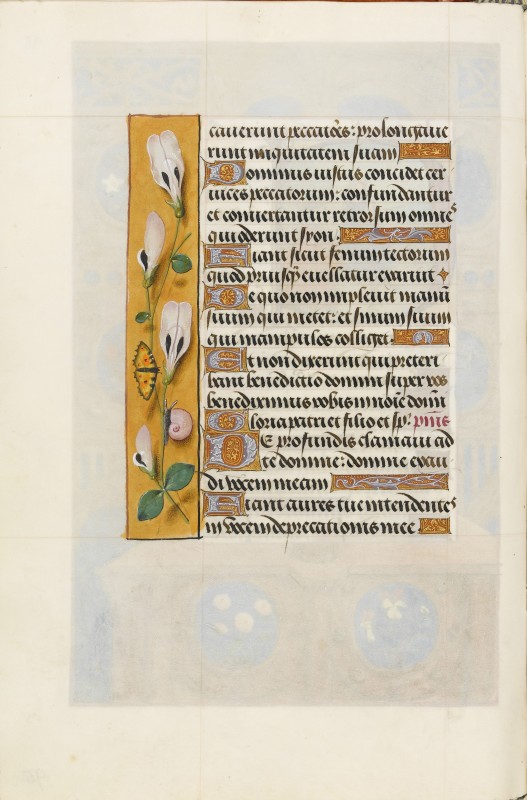 cauerunt peccatores: prolongaue
runt iniquitatem suam
Dominus iustis concidet cer
uices peccatorum: confundantur
et conuertantur retrorsum omnes
qui oderunt syon.
Fiant sicut fenum tectorum
quod priusq̃ euellatur exaruit
De quo non impleuit manū
suam qui metet: et sinum suum
qui manipulos colliget.
Et non dixerunt qui preteri
bant benedictio domini super vos
benediximus vobis in noīe domī
Gloria patri et filio et sp̄. p̄us
DE profundis clamaui ad
te domine: domine exau
di vocem meam
Fiant aures tue intendentes
in vocem deprecationis mee.